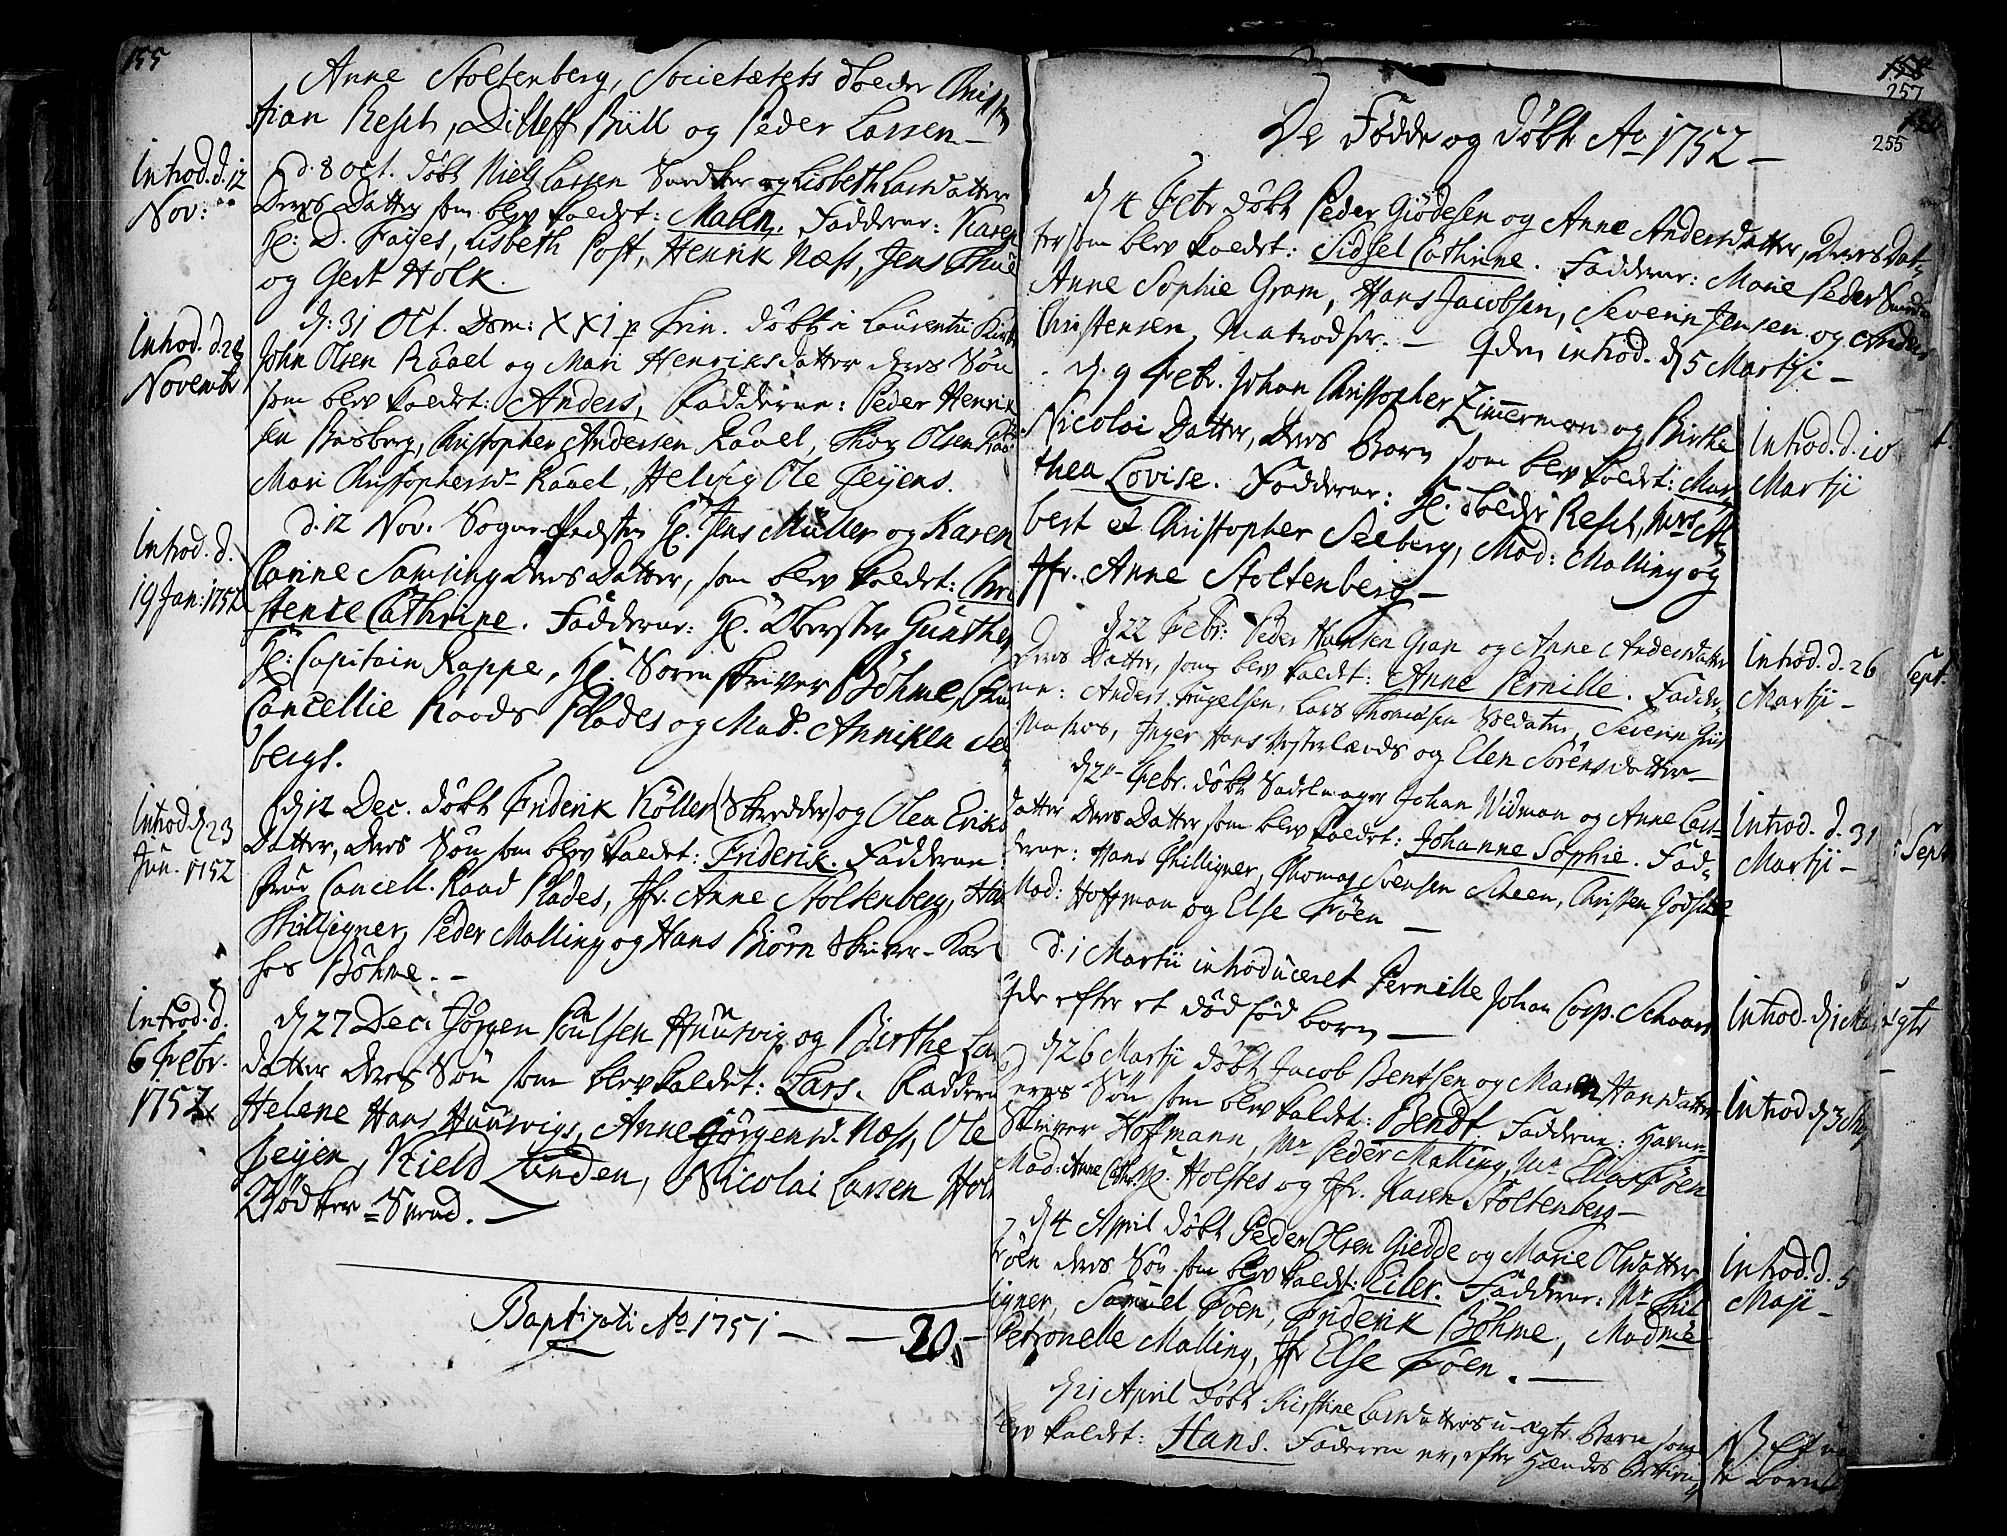 155
Anne Stoltenberg, Societætets Chris-
tian Resch, Ditleff Büll og Peder Larsen —
Introd. d. 12
Nov:
d. 8 Oct. døbt Niels Larsen Snedker og Lisbeth Larsdatter
Deres Datter som blev kaldet: Maren. Fadderne: Karen
H: D. Fayes, Lisbeth Post, Henrik Næss, Jens
og Gert Holk.
Introd. d. 28
Novembr
d: 31 Oct. Dom: XXI p Trin. døbt i Laurentii Kirke
John Olsen Raael og Mari Henriksdatter deres Søn
som blev kaldet: Anders, Fadderne: Peder Henrik-
sen Basberg, Christopher Andersen Raael, Thor Olsen
Mari Christophersd. Raael, Helvig Ole Feyens.
Introd. d.
19 Jan: 1752
d. 12 Nov. Sogne-Præsten H: Jens Müller og Karen
Carine Samsing Deres Datter, som blev kaldet: Chri-
stence Cathrine. Fadderne: H: Oberster Günther
H: Capitain Rappe, H: Sorenskriver Böhme, Fru
Cancellie Raads Plades og Mad. Anniken See-
bergs.
Introd. d. 23
Jan. 1752
d. 12 Dec. døbt Friderik Köller (Skredder) og Olea Eriks
Datter, Deres Søn som blev kaldet: Friderik. Fadderne:
Frue Cancell. Raad Plades, Jfr. Anne Stoltenberg, Hans
Philligner, Peder Malling og Hans Biörn Skriver-Karl
hos Böhme. —
Introd. d.
6 Febr.
1752
d. 27 Dec: Jörgen Poulsen Huusvig og Birthe Lars-
datter Deres Søn som blev kaldet: Lars. Fadderne
Helene Hans Huusvigs, Anne Jörgensd. Næss, Ole
Feijen, Kield Lunden, Nicolai Larsen Holm
Bødker-Svend. —
Baptizati Ao 1751 — — 20.
257
255
De Fødde og døbte Ao 1752 —
d. 4 Febr døbt Peder Giödesen og Anne Andersdatter, Deres Dat-
ter som blev kaldet: Sidsel Cathrine. Fadderne: Marie Peder
Anne Sophie Gram, Hans Jacobsen, Severin Jensen og Anders
Christensen Matrodser. — introd. d. 5 Martji —
d. 9 Febr. Johan Christopher Zimmerman og Birthe
Nicolai Datter, Deres Barn som blev kaldet: Mar-
thea Lovise. Fadderne: H. Resch,
bert et Christopher Seeberg, Mad: Malling og
Jfr. Anne Stoltenberg —
Introd. d. 10
Martji
d. 22 Febr: Peder Hansen Gran og Anne Andersdatter
Deres Datter, som blev kaldet: Anne Pernille. Fadder-
ne: Anders Engelsen, Lars Thomesen Soldater, Severin
Matros, Inger Hans Vesterlænds og Elen Sörensdatter —
Introd. d. 26
Martji —
Febr. døbt Sadelmager Johan Widman og Anne Lars-
datter Deres Datter som blev kaldet: Johanne Sophie. Fad-
derne: Hans Philligner, Thomas Svensen Scheen, Christen
Mad: Hoffman og Else Föen —
Introd. d. 31
Martji —
d. 1 Martii introduceret Pernille Johan Casp. Schaars
Ide efter et død fød barn —
d. 26 Martji døbt Jacob Bentsen og Maren Hansdatter
Deres Søn som blev kaldet: Bendt Fadderne: Havne-
Skriver Hofmann, Mr Peder Malling, Mr Elias Föen
Mad: Anne Cathr. H. Holstes og Jfr. Karen Stoltenberg —
Introd. d. 1 Maj
Introd d. 3 Maj
d. 4 April døbt Peder Olsen Giedde og Marie Olsdatter
Föen deres Søn som blev kaldet: Eiler. Fadderne: Mr Phil-
ligner, Samuel Föen, Friderik Böhme, Madme
Petronelle Malling, Jfr Else Föen. —
Introd. d. 5
Maji —
d. 21 April døbt Kirstine Larsdatters u-ægte Barn som
blev kaldet: Hans. Faderen er, efter Hændes
NB
Sept.
Sept